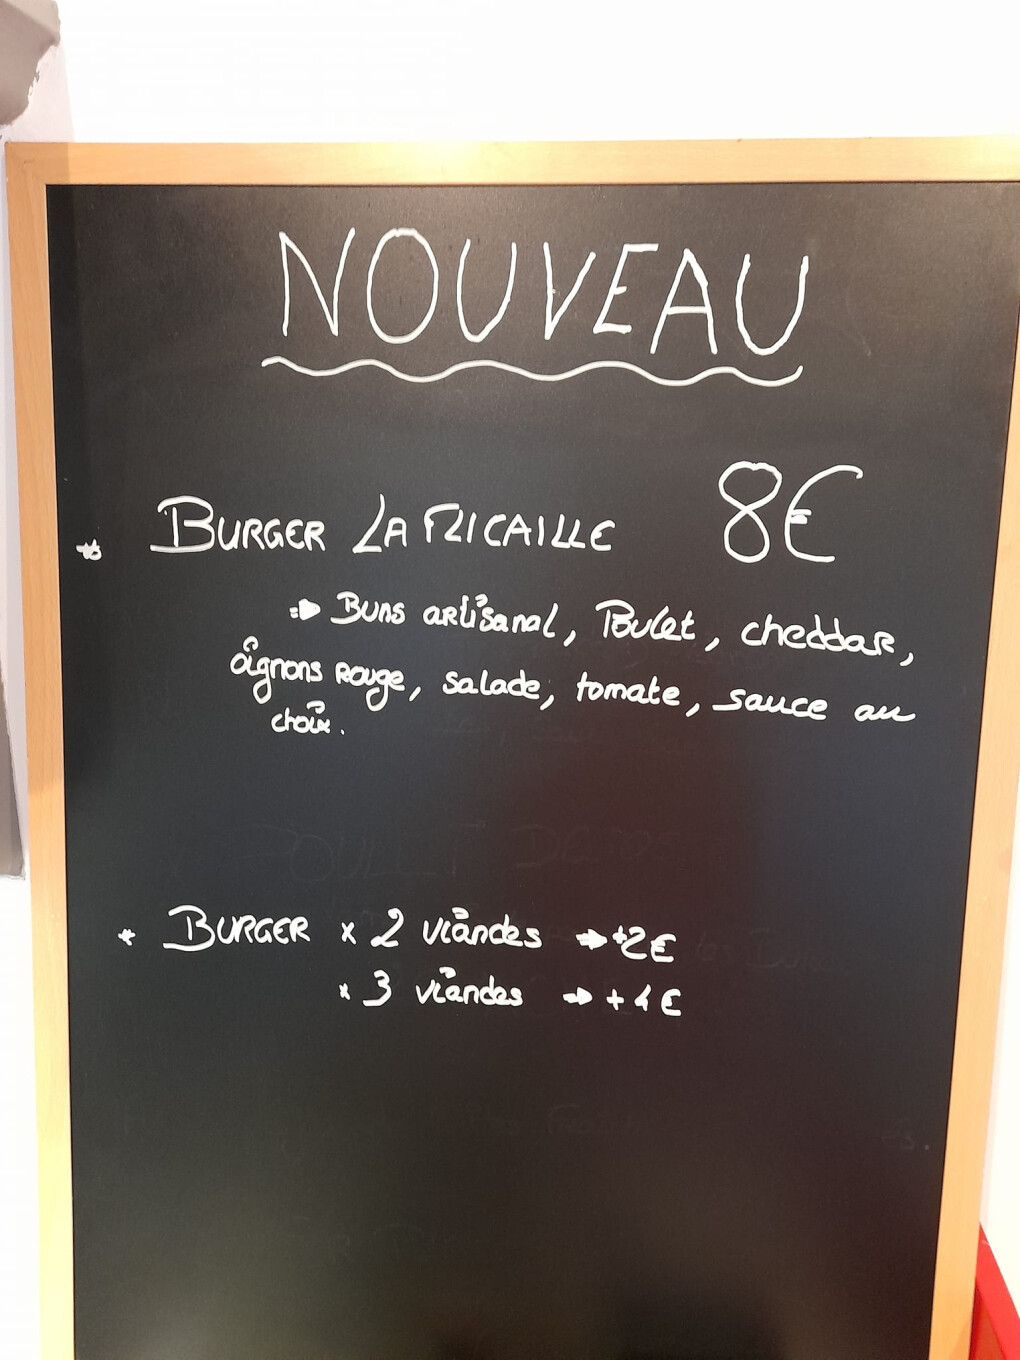 NOUVEAU
* BURGER LA FLICAILLE 8€
⇒ Buns artisanal, Poulet, cheddar,
oignons rouge, salade, tomate, sauce au
choix.
* BURGER x 2 viandes → +2€
x 3 viandes → + 4€